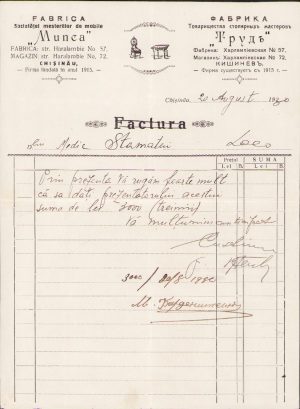 FABRICA
Societăței mesterilor de mobile
"Munca"
FABRICA: str. Haralambie No 57,
MAGAZIN str. Haralambie No 72,
CHIȘINĂU,
Firma fondată în anul 1915.
ФАБРИКА
Товарищества столярныхъ мастеровъ
"Трудъ"
Фабрика: Харлампіевская № 57
Магазинъ Харлампіевская № 72,
КИШИНЕВЪ,
Фирма существуетъ съ 1915 г.
Chișinău, 20 August 1920
Factura
Medic Stamatin Loco
Prețul SUMA
Lei B. Lei B.
Prin prezenta Vă rugăm foarte mult
că să dați prezentatorului acestuia
suma de lei 3000 (treimii)
Vă mulțumim
3000 / 20/8 1920